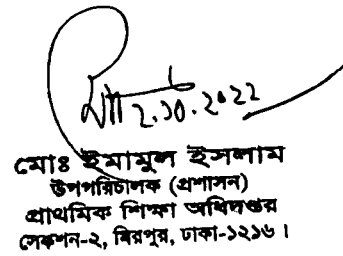 2.10.2022
মোঃ ইমামুল ইসলাম
উপপরিচালক (প্রশাসন)
প্রাথমিক শিক্ষা অধিদপ্তর
সেকশন-২, মিরপুর, ঢাকা-১২১৬।